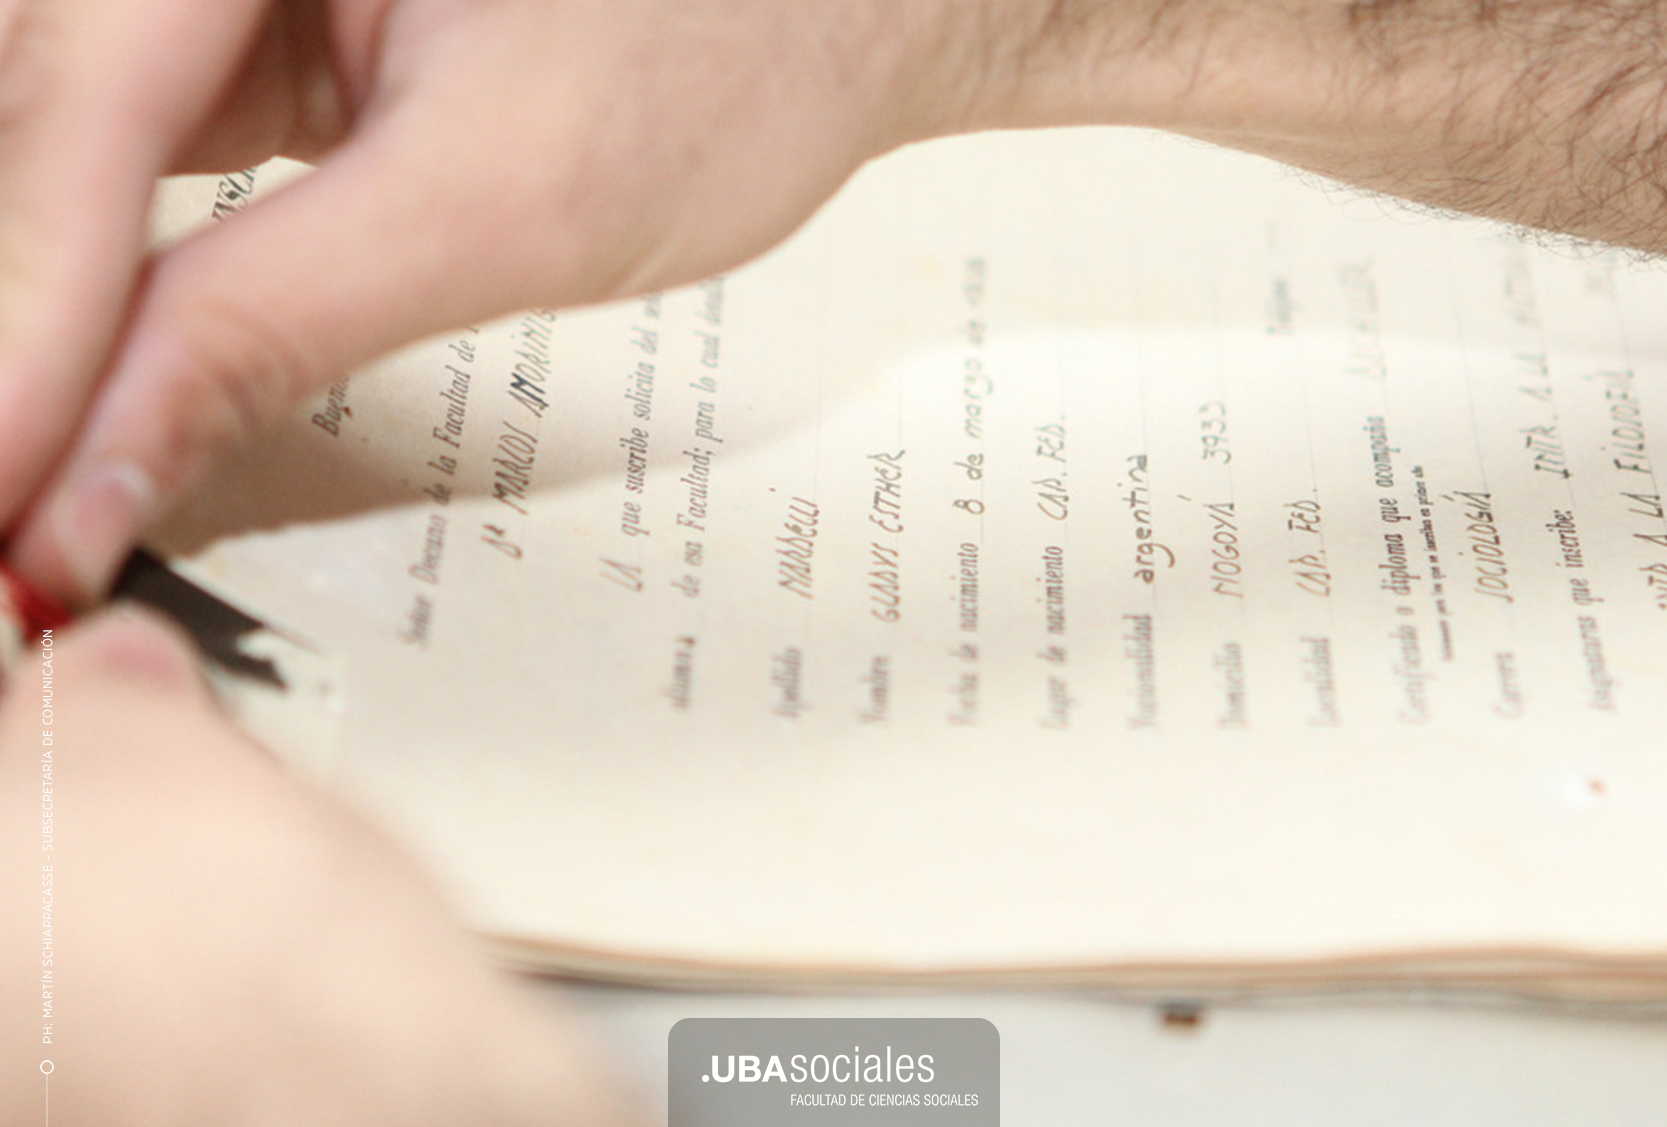 INSC
Buenos
Señor Decano de la Facultad de
Dª MARCOS
LA que suscribe solicita del
alumna de esa Facultad; para lo cual
Apellido MARDELLI
Nombre GLADYS ESTHER
Fecha de nacimiento 8 de marzo de
Lugar de nacimiento CAP. FED.
Nacionalidad argentina
Domicilio MOGOYÁ 3933
Localidad CAP. FED.
Certificado o diploma que acompaña
Carrera SOCIOLOGÍA
Asignaturas que inscribe: INTR. A LA
A LA FILOSOFÍA
PH: MARTÍN SCHIAPPACASSE - SUBSECRETARÍA DE COMUNICACIÓN
.UBAsociales
FACULTAD DE CIENCIAS SOCIALES